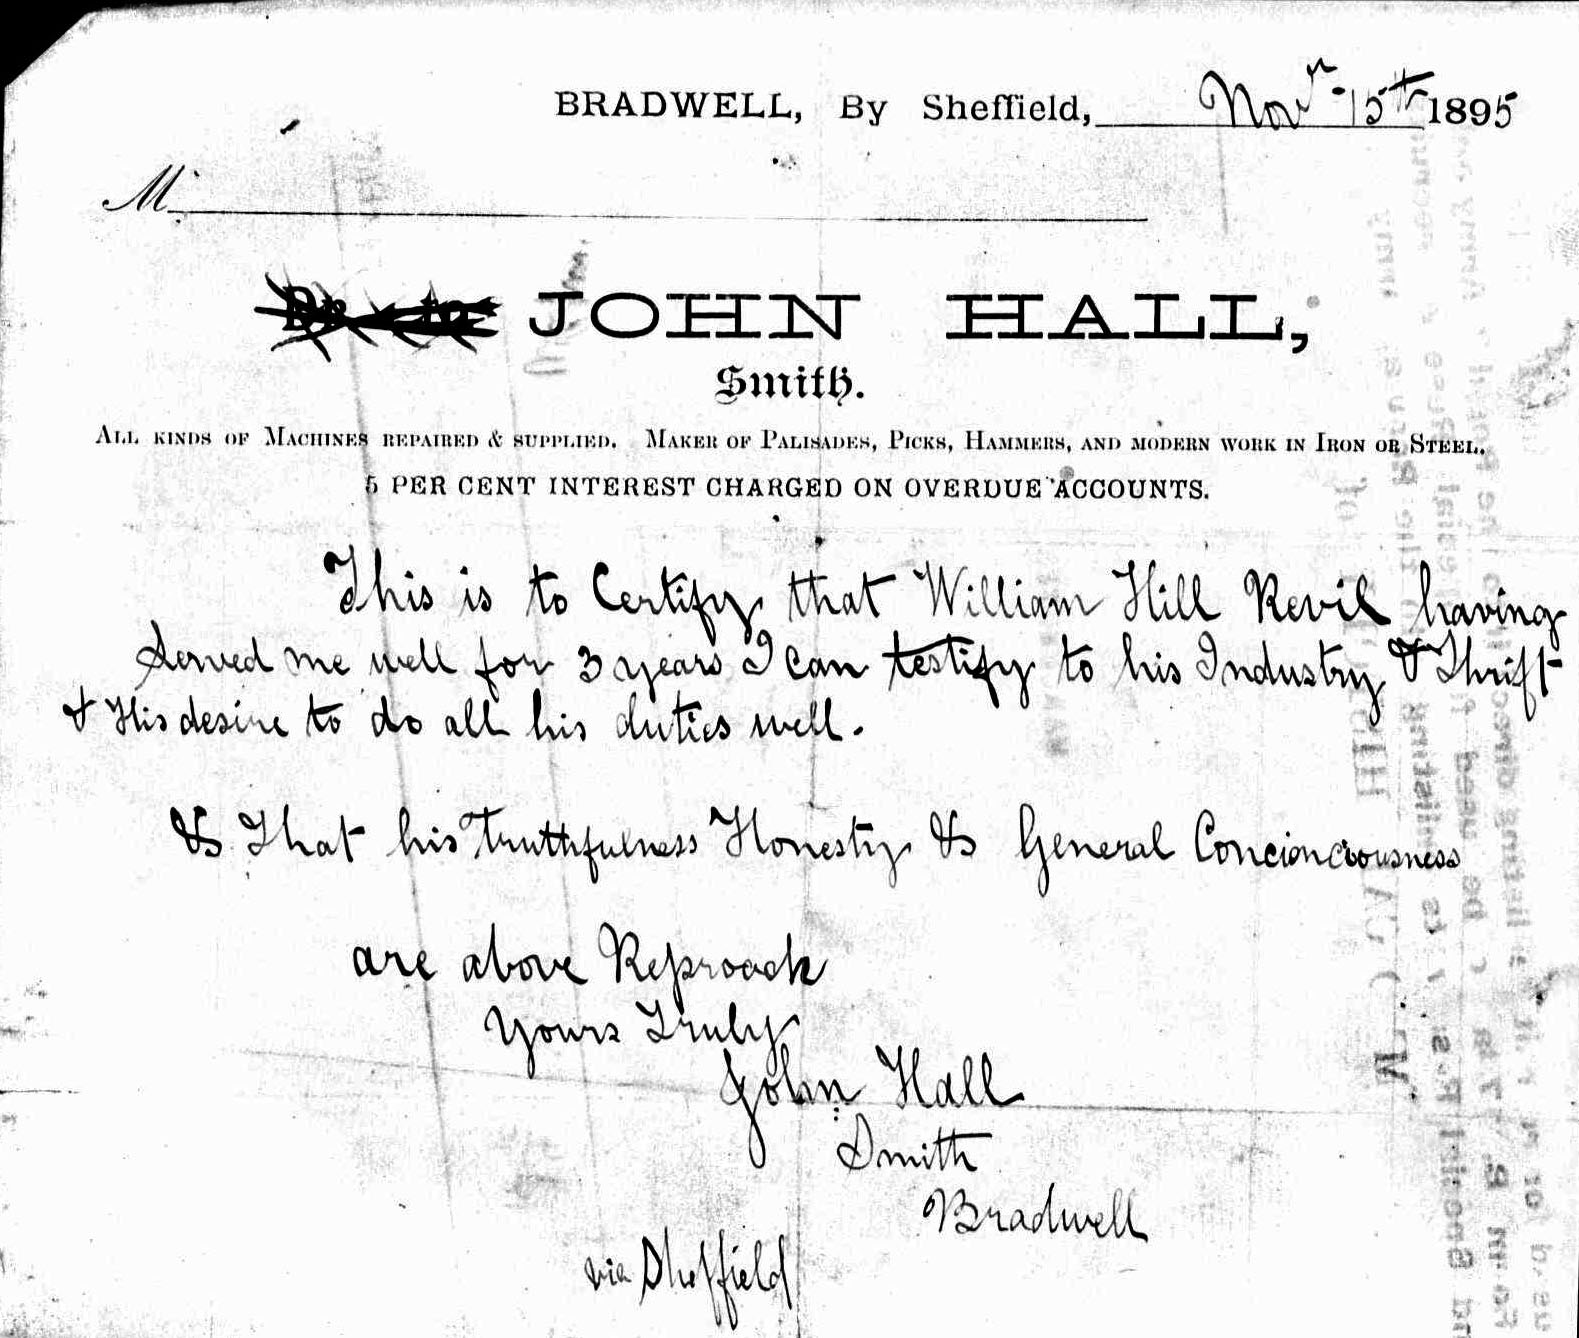 BRADWELL, By Sheffield, Novr 15th 1895
M
JOHN HALL,
Smith.
ALL KINDS OF MACHINES REPAIRED & SUPPLIED. MAKER OF PALISADES, PICKS, HAMMERS, AND MODERN WORK IN IRON OR STEEL.
5 PER CENT INTEREST CHARGED ON OVERDUE ACCOUNTS.
This is to Certify that William Hill Revil having
Served me well for 3 years I can testify to his Industry & Thrift
& His desire to do all his duties well.
& That his truthfulness Honesty & General Concienciousness
are above Reproach
Yours Truly
John Hall
Smith
Bradwell
via Sheffield